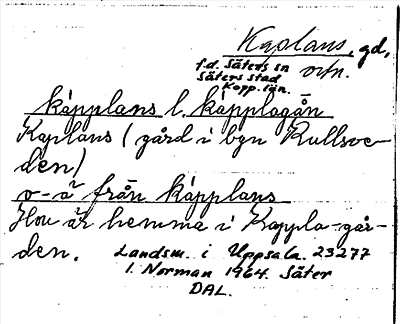 Kaplans, gd,
f.d. Säters sn ortn.
Säters stad
Kopp. län.
kápplans l. kapplagån
Kaplans (gård i byn Kullsve-
den)
o-ä från kápplans
Hon är hemma i Kappla-går-
den.
Landsm. i Uppsala. 23277
I. Norman 1964. Säter
DAL.